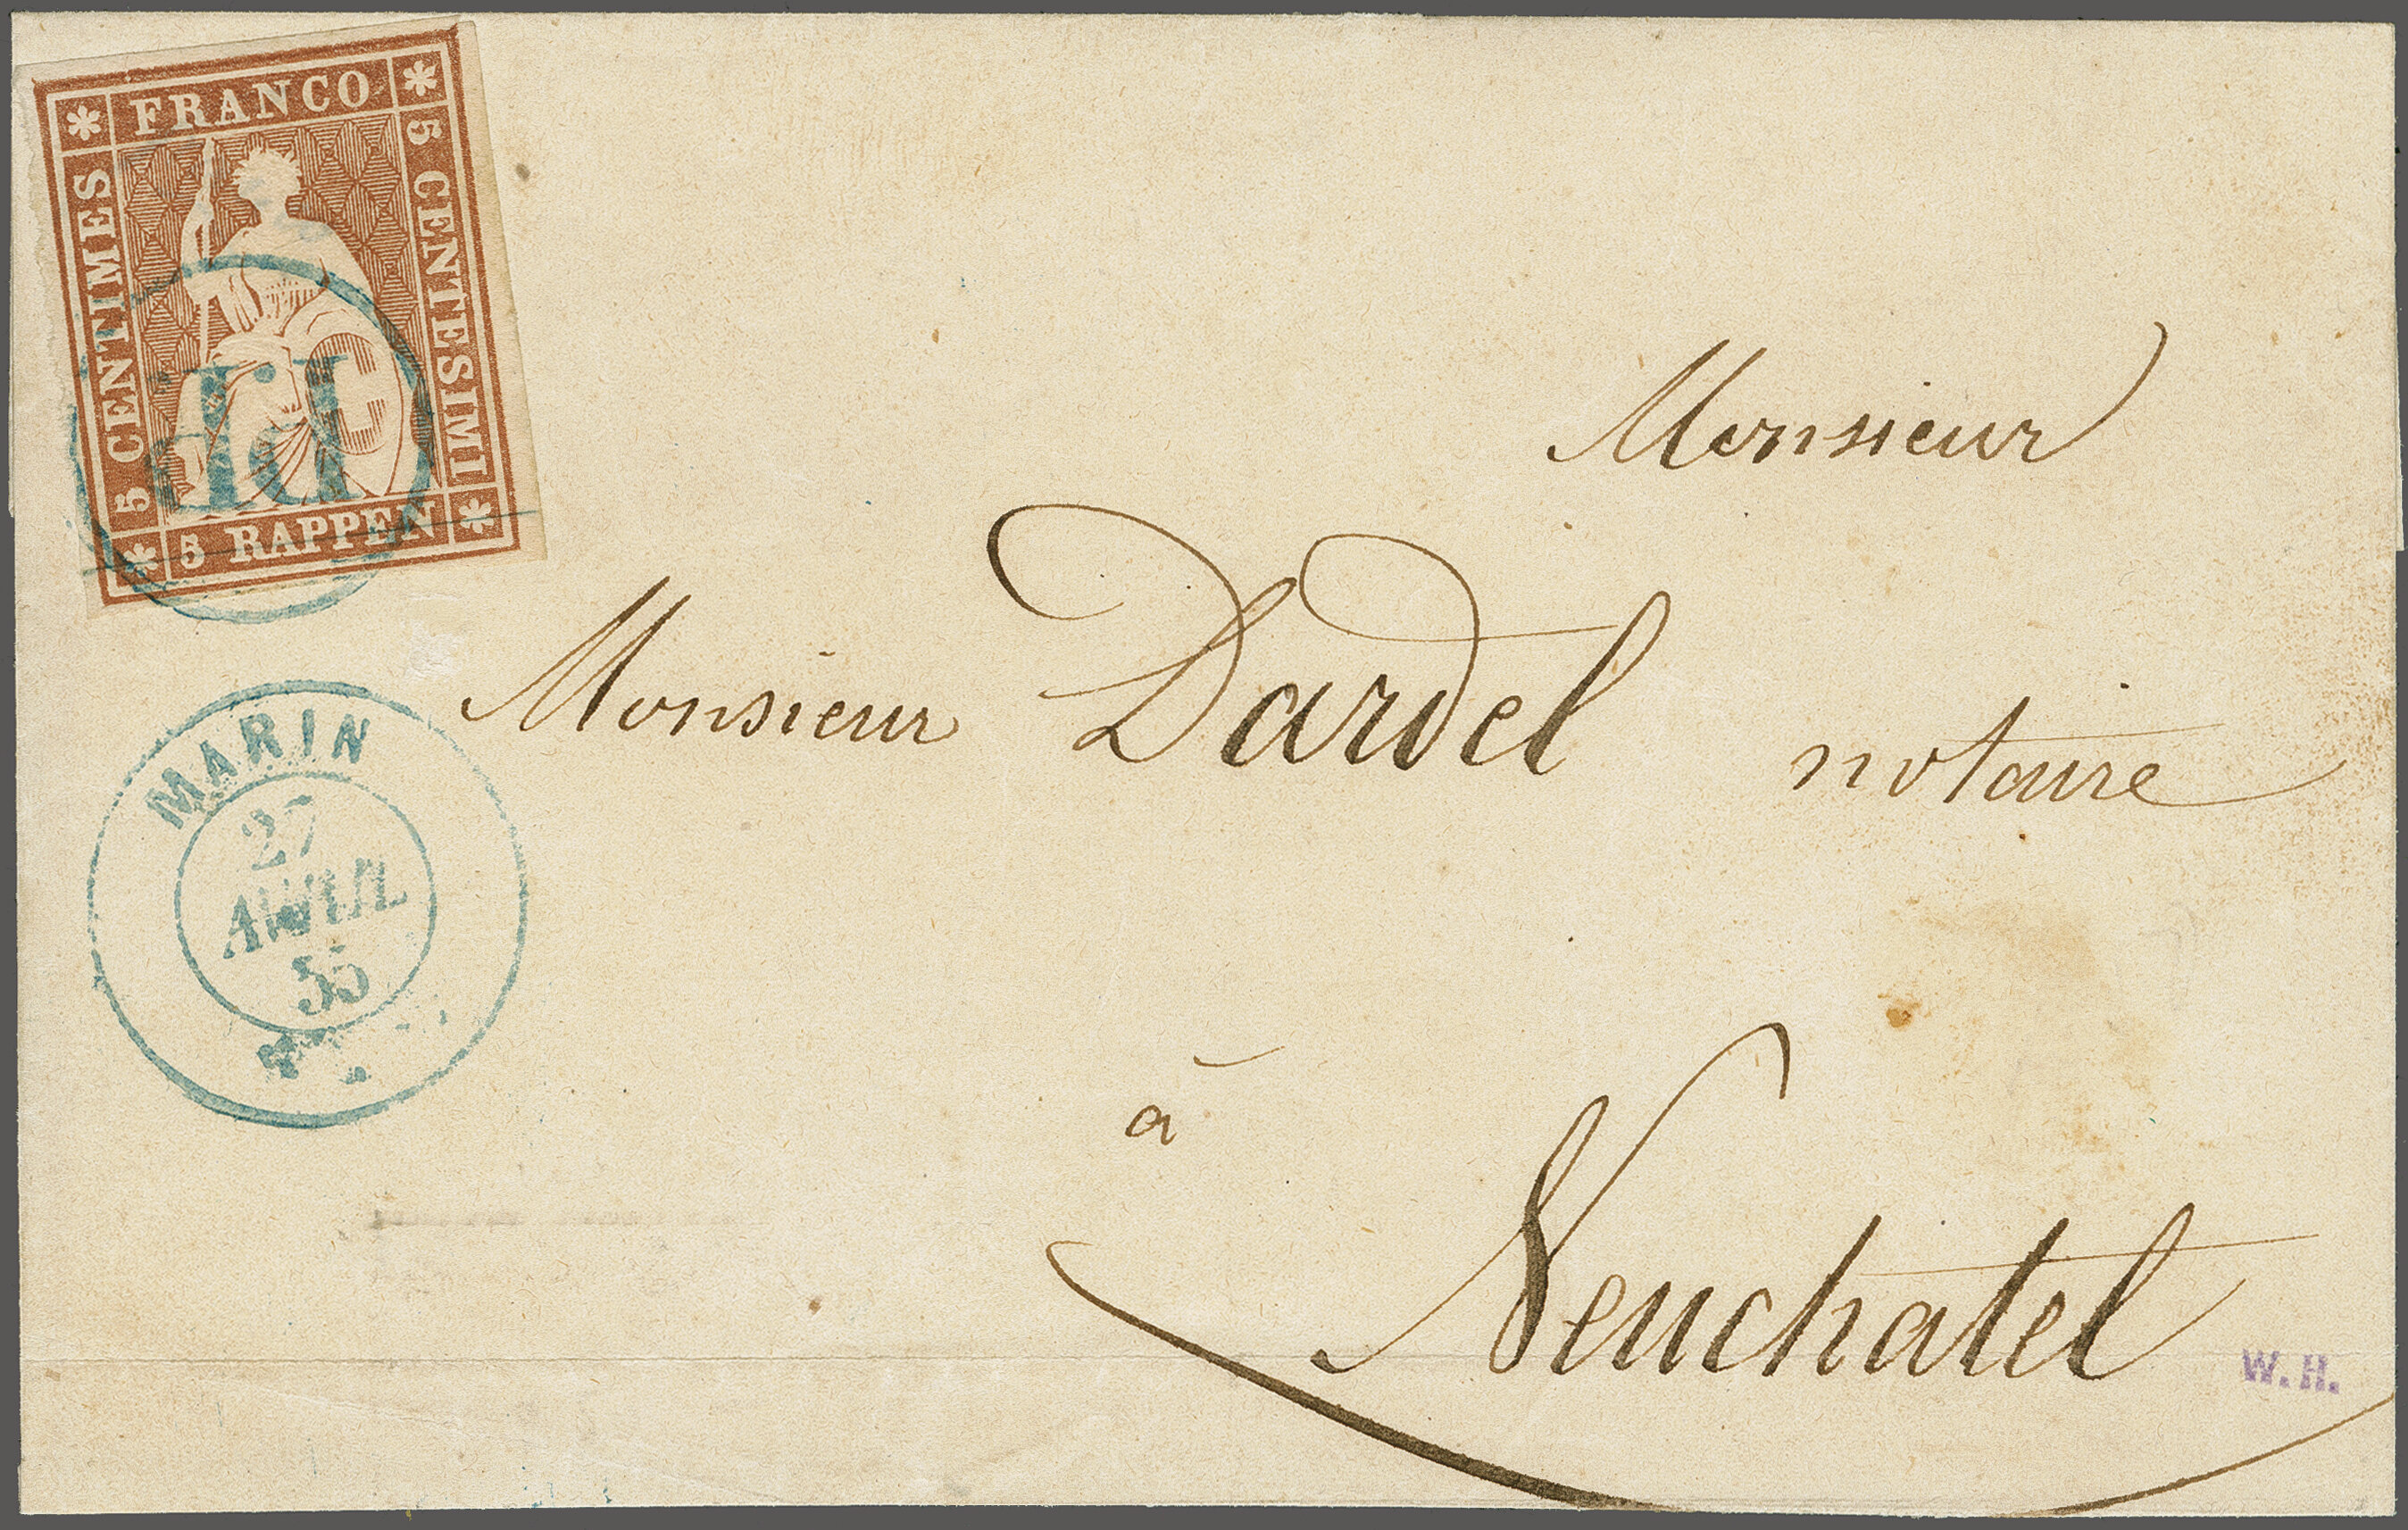 FRANCO
5 CENTIMES
5 CENTESIMI
5 RAPPEN
P.P.
Monsieur
Monsieur Dardel notaire
MARIN
27
AVRIL
55
à
Neuchatel
W. H.